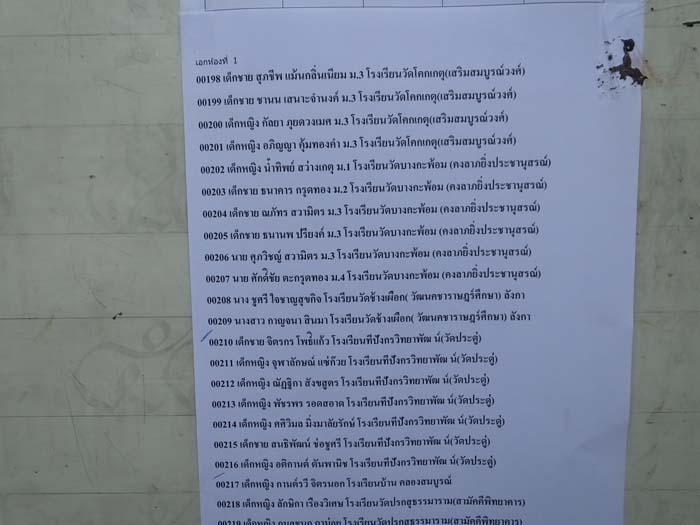 เอกห้องที่ 1
00198 เด็กชาย สุภชีพ แม้นกลิ่นเนียม ม.3 โรงเรียนวัดโคกเกตุ(เสริมสมบูรณ์วงศ์)
00199 เด็กชาย ชานน เสนาะจำนงค์ ม.3 โรงเรียนวัดโคกเกตุ(เสริมสมบูรณ์วงศ์)
00200 เด็กหญิง กัลยา ภุยดวงเมศ ม.3 โรงเรียนวัดโคกเกตุ(เสริมสมบูรณ์วงศ์)
00201 เด็กหญิง อภิญญา คุ้มทองคำ ม.3 โรงเรียนวัดโคกเกตุ(เสริมสมบูรณ์วงศ์)
00202 เด็กหญิง น้ำทิพย์ สว่างเกตุ ม.1 โรงเรียนวัดบางกะพ้อม (คงลาภยิ่งประชานุสรณ์)
00203 เด็กชาย ธนาคาร กรุดทอง ม.2 โรงเรียนวัดบางกะพ้อม (คงลาภยิ่งประชานุสรณ์)
00204 เด็กชาย ณภัทร สวามิตร ม.3 โรงเรียนวัดบางกะพ้อม (คงลาภยิ่งประชานุสรณ์)
00205 เด็กชาย ธนานพ ปรียงค์ ม.3 โรงเรียนวัดบางกะพ้อม (คงลาภยิ่งประชานุสรณ์)
00206 นาย ศุภวิชญ์ สวามิตร ม.3 โรงเรียนวัดบางกะพ้อม (คงลาภยิ่งประชานุสรณ์)
00207 นาย ศักดิ์ชัย ตะกรุดทอง ม.4 โรงเรียนวัดบางกะพ้อม (คงลาภยิ่งประชานุสรณ์)
00208 นาง ชูศรี ใจชาญสุขกิจ โรงเรียนวัดช้างเผือก( วัฒนคชาราษฎร์ศึกษา) ลังกา
00209 นางสาว กาญจนา สินมา โรงเรียนวัดช้างเผือก( วัฒนคชาราษฎร์ศึกษา) ลังกา
00210 เด็กชาย จิตรกร โพธิ์แก้ว โรงเรียนทีปังกรวิทยาพัฒ น์(วัดประดู่)
00211 เด็กหญิง จุฬาลักษณ์ แซ่ก๊วย โรงเรียนทีปังกรวิทยาพัฒ น์(วัดประดู่)
00212 เด็กหญิง ณัฏฐิกา สังขสูตร โรงเรียนทีปังกรวิทยาพัฒ น์(วัดประดู่)
00213 เด็กหญิง พัชรพร รอดสอาด โรงเรียนทีปังกรวิทยาพัฒ น์(วัดประดู่)
00214 เด็กหญิง ศศิวิมล มิ่งมาลัยรักษ์ โรงเรียนทีปังกรวิทยาพัฒ น์(วัดประดู่)
00215 เด็กชาย สนธิพัฒน์ ช่อชูศรี โรงเรียนทีปังกรวิทยาพัฒ น์(วัดประดู่)
00216 เด็กหญิง อติกานต์ ตันพานิช โรงเรียนทีปังกรวิทยาพัฒ น์(วัดประดู่)
00217 เด็กหญิง กานต์รวี จิตรนอก โรงเรียนบ้าน คลองสมบูรณ์
00218 เด็กหญิง ลักษิกา เรืองวิเศษ โรงเรียนวัดปรกสุธรรมาราม(สามัคคีพิทยาคาร)
00219 โรงเรียนวัดปรกสุธรรมาราม(สามัคคีพิทยาคาร)